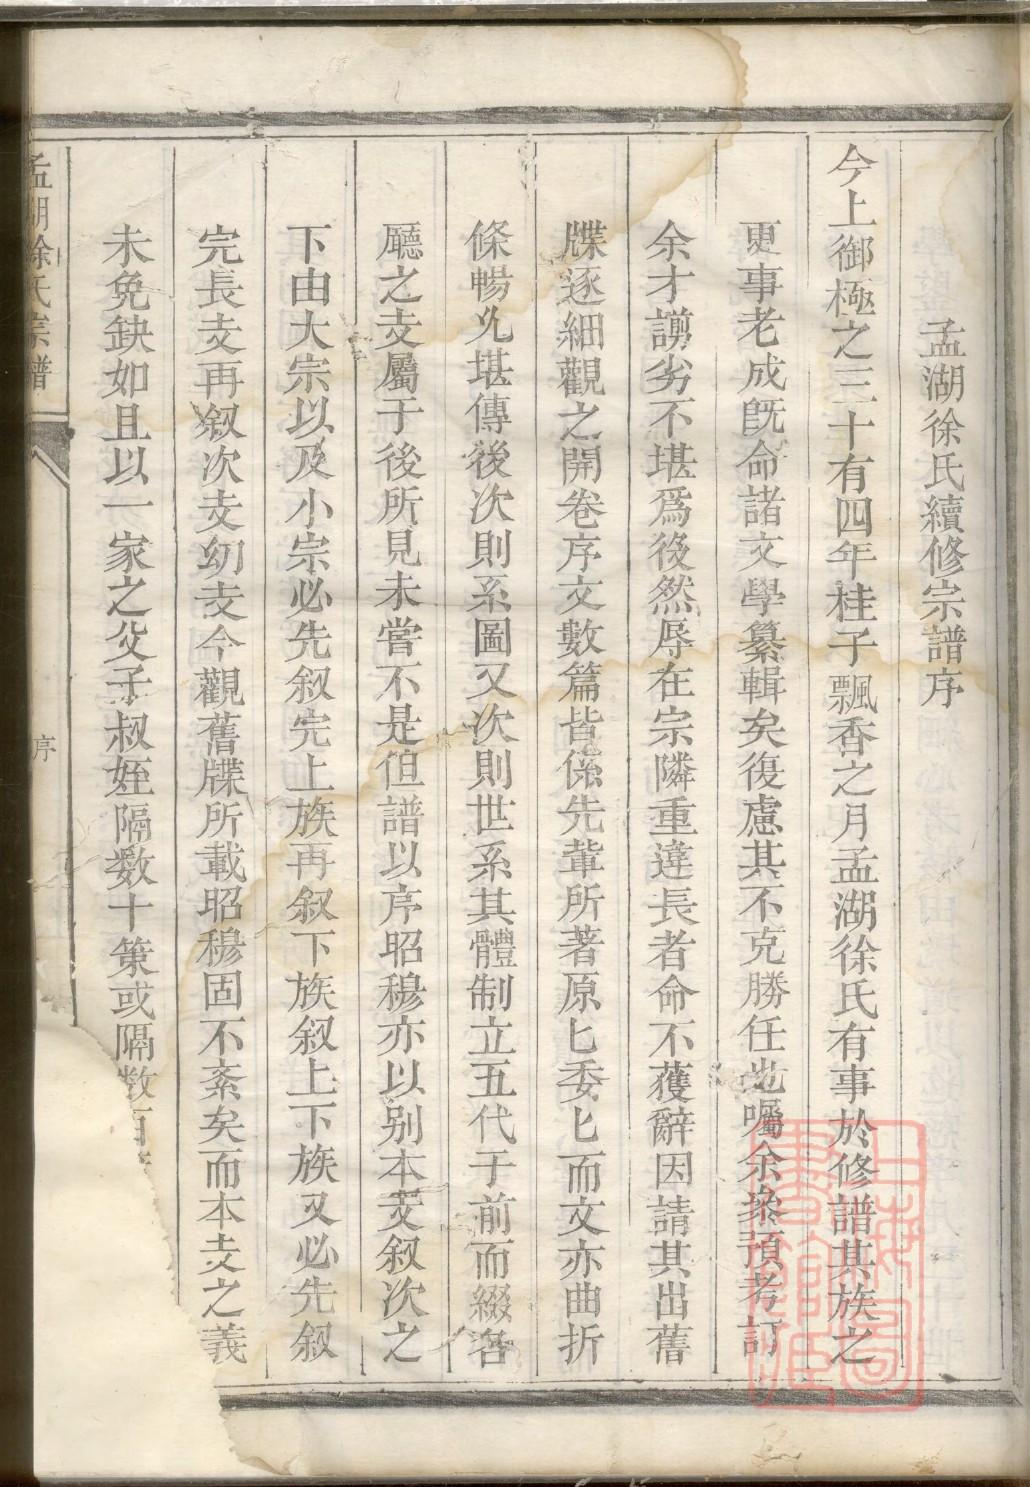 孟湖徐氏續修宗譜序
今上御極之三十有四年桂子飄香之月孟湖徐氏有事於修譜其族之
更事老成旣命諸文學纂輯矣復慮其不克勝任也囑余叅預考訂
余才謭劣不堪爲役然辱在宗隣重違長者命不獲辭因請其出舊
牒逐細觀之開卷序文數篇皆係先輩所著原匕委匕而文亦曲折
條暢尤堪傳後次則系圖又次則世系其體制立五代于前而綴各
廳之支屬于後所見未嘗不是但譜以序昭穆亦以别本支叙次之
下由大宗以及小宗必先叙完上族再叙下族叙上下族又必先叙
完長支再叙次支幼支今觀舊牒所載昭穆固不紊矣而本支之義
未免缺如且以一家之父子叔姪隔数十策或隔数百
孟湖徐氏宗譜
序
上海圖書館藏